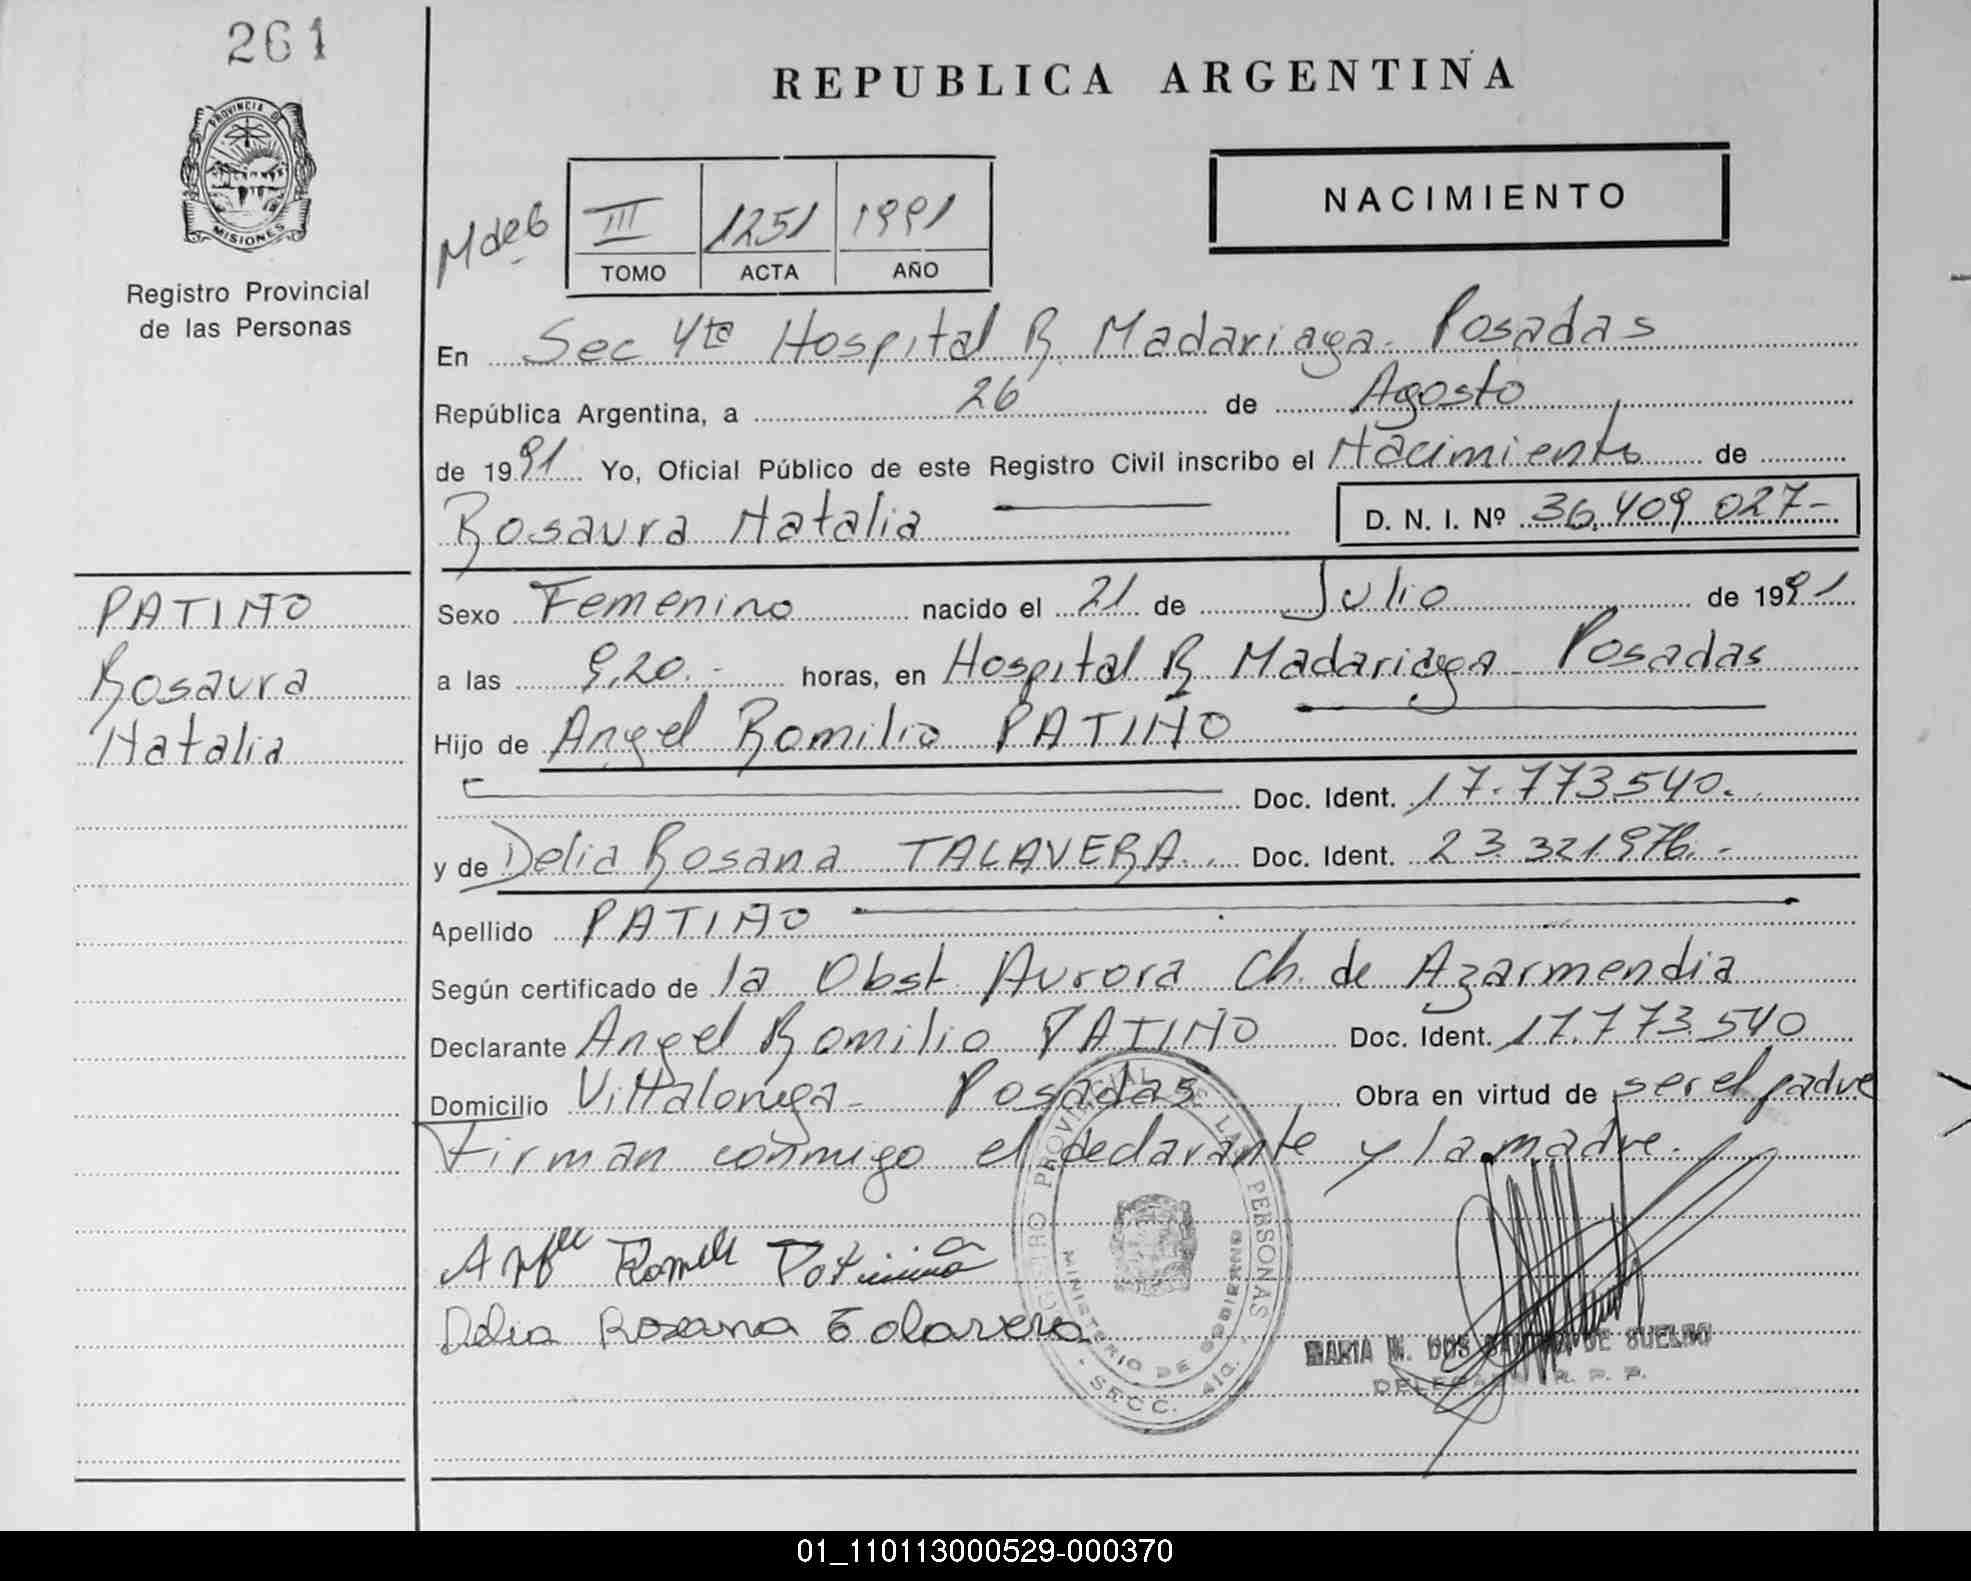 261
PROVINCIA DE
MISIONES
Registro Provincial
de las Personas
REPUBLICA ARGENTINA
NACIMIENTO
III 1251 1991
TOMO ACTA AÑO
En Sec 4ta Hospital R. Madariaga - Posadas
República Argentina, a 26 de Agosto
de 1991 Yo, Oficial Público de este Registro Civil inscribo el Nacimiento de
Rosaura Natalia D. N. I. Nº 36.409.027-
PATIÑO
Rosaura
Natalia
Sexo Femenino nacido el 21 de Julio de 1991
a las 9,20.- horas, en Hospital R. Madariaga - Posadas
Hijo de Angel Romilio PATIÑO
Doc. Ident. 17.773.540.
y de Delia Rosana TALAVERA. Doc. Ident. 23.321.976.-
Apellido PATIÑO
Según certificado de la Obst. Aurora Ch. de Azarmendia
Declarante Angel Romilio PATIÑO Doc. Ident. 17.773.540
Domicilio Villalonga - Posadas Obra en virtud de ser el padre
Firman conmigo el declarante y la madre.
Delia Rosana Talavera
REGISTRO PROVINCIAL DE LAS PERSONAS
MINISTERIO DE GOBIERNO
SECC. 4ta.
MARIA M. DOS DE SUELDO
R. P. P.
01_110113000529-000370